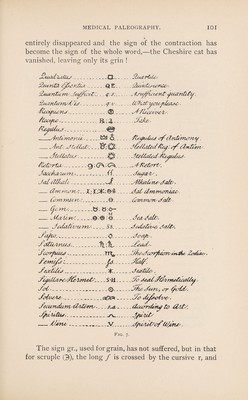 MEDICAL PALEOGRAPHY. 101
entirely disappeared and the sign of the contraction has
become the sign of the whole word,—the Cheshire cat has
vanished, leaving only its grin !
Quartatio Quartile.
Quinta Essentia Q E. Quintessence.
Quantum Sufficit q. s. A sufficient quantity.
Quantum Vis q. v. What you please.
Recipiens A Receiver.
Recipe ℞. Take.
Regulus
Antimonii Regulus of Antimony.
Ant. Stellat. Stellated Reg. of Antim
Stellatus Stellated Regulus.
Retorta A Retort.
Saccharum Sugar.
Sal Alkali Alkaline Salt.
Ammon. Sal Ammoniac.
Commun. Common Salt.
Gem.
Marin. Sea Salt.
Sedativum Sedative Salt.
Sapo Soap.
Saturnus ♄. Lead.
Scorpius ♏ The Scorpion in the Zodiac.
Semiss. Half.
Sextilis Sextile.
Sigillare Hermet. To Seal Hermetically.
Sol The Sun, or Gold.
Solvere To dissolve.
Secundum Artem s.a. According to Art.
Spiritus Spirit
Vini Spirit of Wine.
FIG. 7.
The sign gr., used for grain, has not suffered, but in that
for scruple (℈), the long ſ is crossed by the cursive r, and